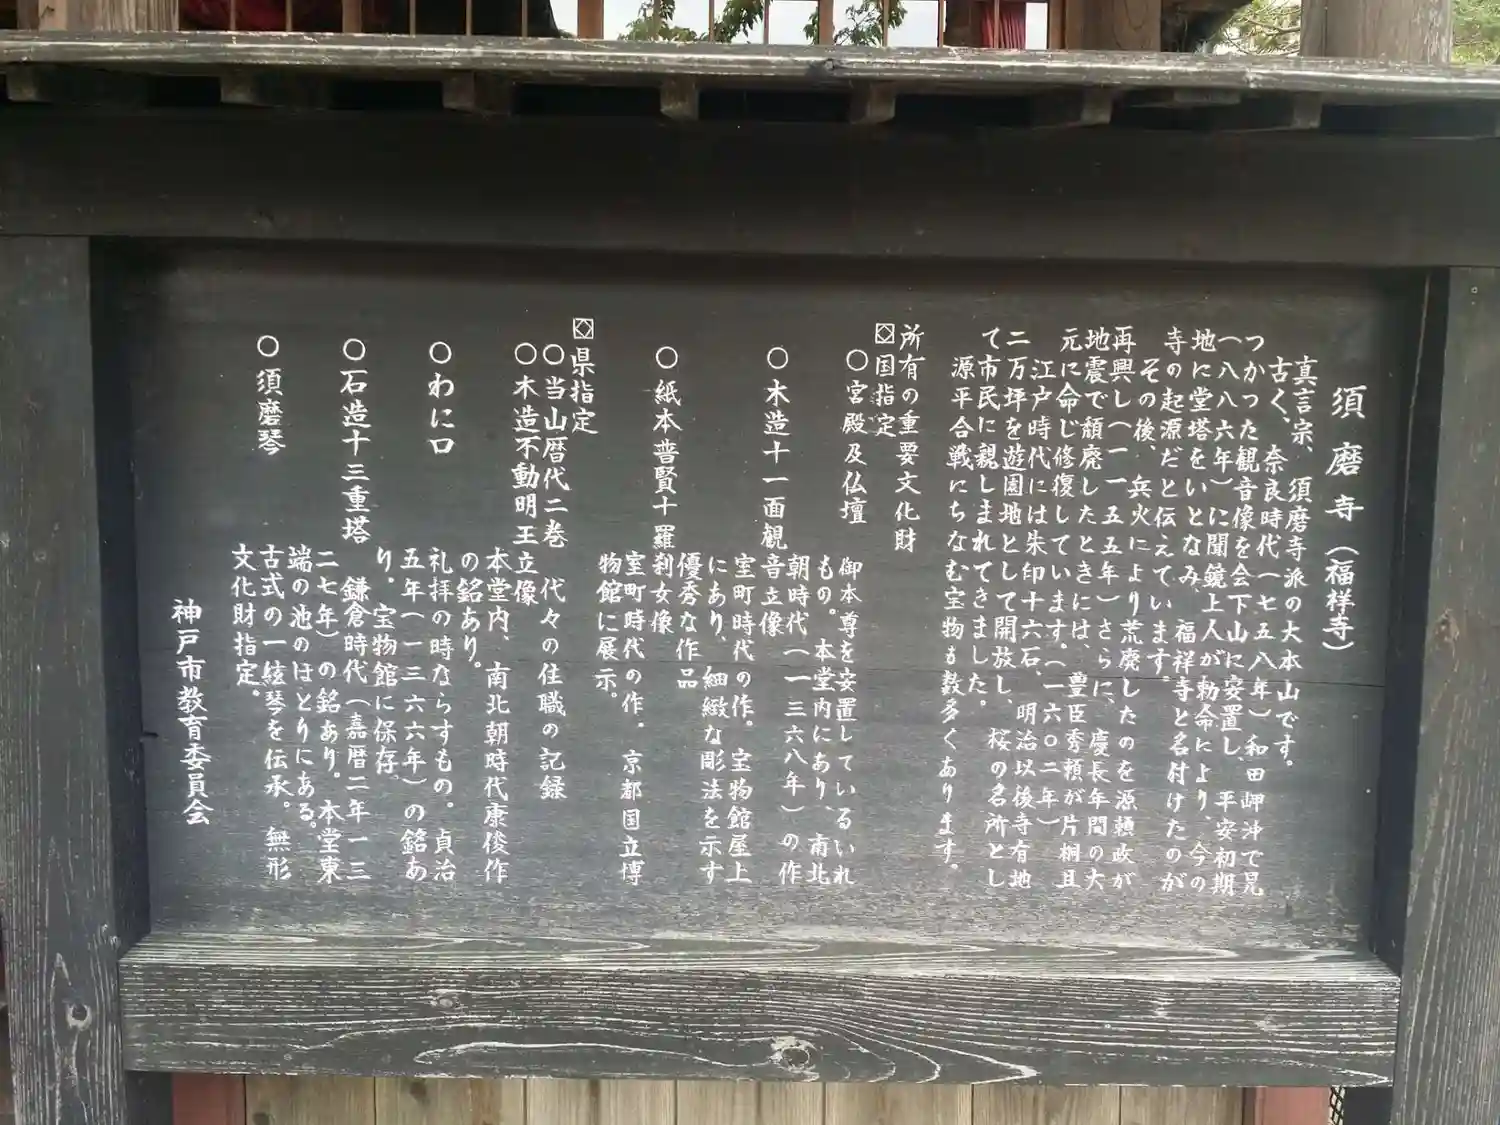 須磨寺（福祥寺）
真言宗、須磨寺派の大本山です。
古く、奈良時代（七五八年）和田岬沖で見
つかった観音像を会下山に安置し、平安初期
（八八六年）に聞鏡上人が勅命により、今の
地に堂塔をいとなみ、福祥寺と名付けたのが
寺の起源だと伝えています。
その後、兵火により荒廃したのを源頼政が
再興し（一一五五年）さらに、慶長年間の大
地震で頽廃したときには、豊臣秀頼が片桐且
元に命じ修復しています。（一六〇二年）
江戸時代には朱印十六石、明治以後寺有地
二万坪を遊園地として開放し、桜の名所とし
て市民に親しまれてきました。
源平合戦にちなむ宝物も数多くあります。
所有の重要文化財
国指定
〇宮殿及仏壇 御本尊を安置しているいれ
もの。本堂内にあり、南北
朝時代（一三六八年）の作
〇木造十一面観音立像
室町時代の作。宝物館屋上
にあり、細緻な彫法を示す
優秀な作品
〇紙本普賢十羅刹女像
室町時代の作．京都国立博
物館に展示。
県指定
〇当山暦代二巻 代々の住職の記録
〇木造不動明王立像
本堂内、南北朝時代康俊作
の銘あり。
〇わに口 礼拝の時ならすもの。貞治
五年（一三六六年）の銘あ
り。宝物館に保存
〇石造十三重塔 鎌倉時代（嘉暦二年一三
二七年）の銘あり。本堂東
端の池のほとりにある。
〇須磨琴 古式の一絃琴を伝承。無形
文化財指定。
神戸市教育委員会